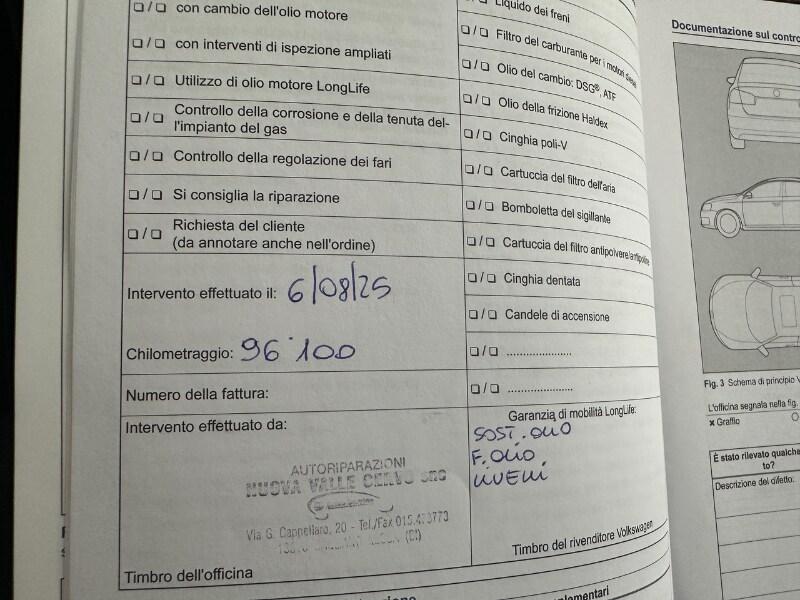 ❏ / ❏ con cambio dell'olio motore
❏ / ❏ con interventi di ispezione ampliati
❏ / ❏ Utilizzo di olio motore LongLife
❏ / ❏ Controllo della corrosione e della tenuta del-
l'impianto del gas
❏ / ❏ Controllo della regolazione dei fari
❏ / ❏ Si consiglia la riparazione
❏ / ❏ Richiesta del cliente
(da annotare anche nell'ordine)
Intervento effettuato il: 6/08/25
Chilometraggio: 96'100
Numero della fattura:
Intervento effettuato da:
AUTORIPARAZIONI
NUOVA VALLE CERVO snc
Via G. Cappellaro, 20 - Tel./Fax 015.
Timbro dell'officina
Liquido dei freni
❏ / ❏ Filtro del carburante per i motori diesel
❏ / ❏ Olio del cambio: DSG®, ATF
❏ / ❏ Olio della frizione Haldex
❏ / ❏ Cinghia poli-V
❏ / ❏ Cartuccia del filtro dell'aria
❏ / ❏ Bomboletta del sigillante
❏ / ❏ Cartuccia del filtro antipolvere/antipolline
❏ / ❏ Cinghia dentata
❏ / ❏ Candele di accensione
❏ / ❏ ......................
❏ / ❏ ......................
Garanzia di mobilità LongLife:
SOST. OLIO
F. OLIO
LIVELLI
Timbro del rivenditore Volkswagen
Documentazione sul contro
Fig. 3 Schema di principio V
L'officina segnala nella fig.
✖ Graffio
È stato rilevato qualche
to?
Descrizione del difetto: